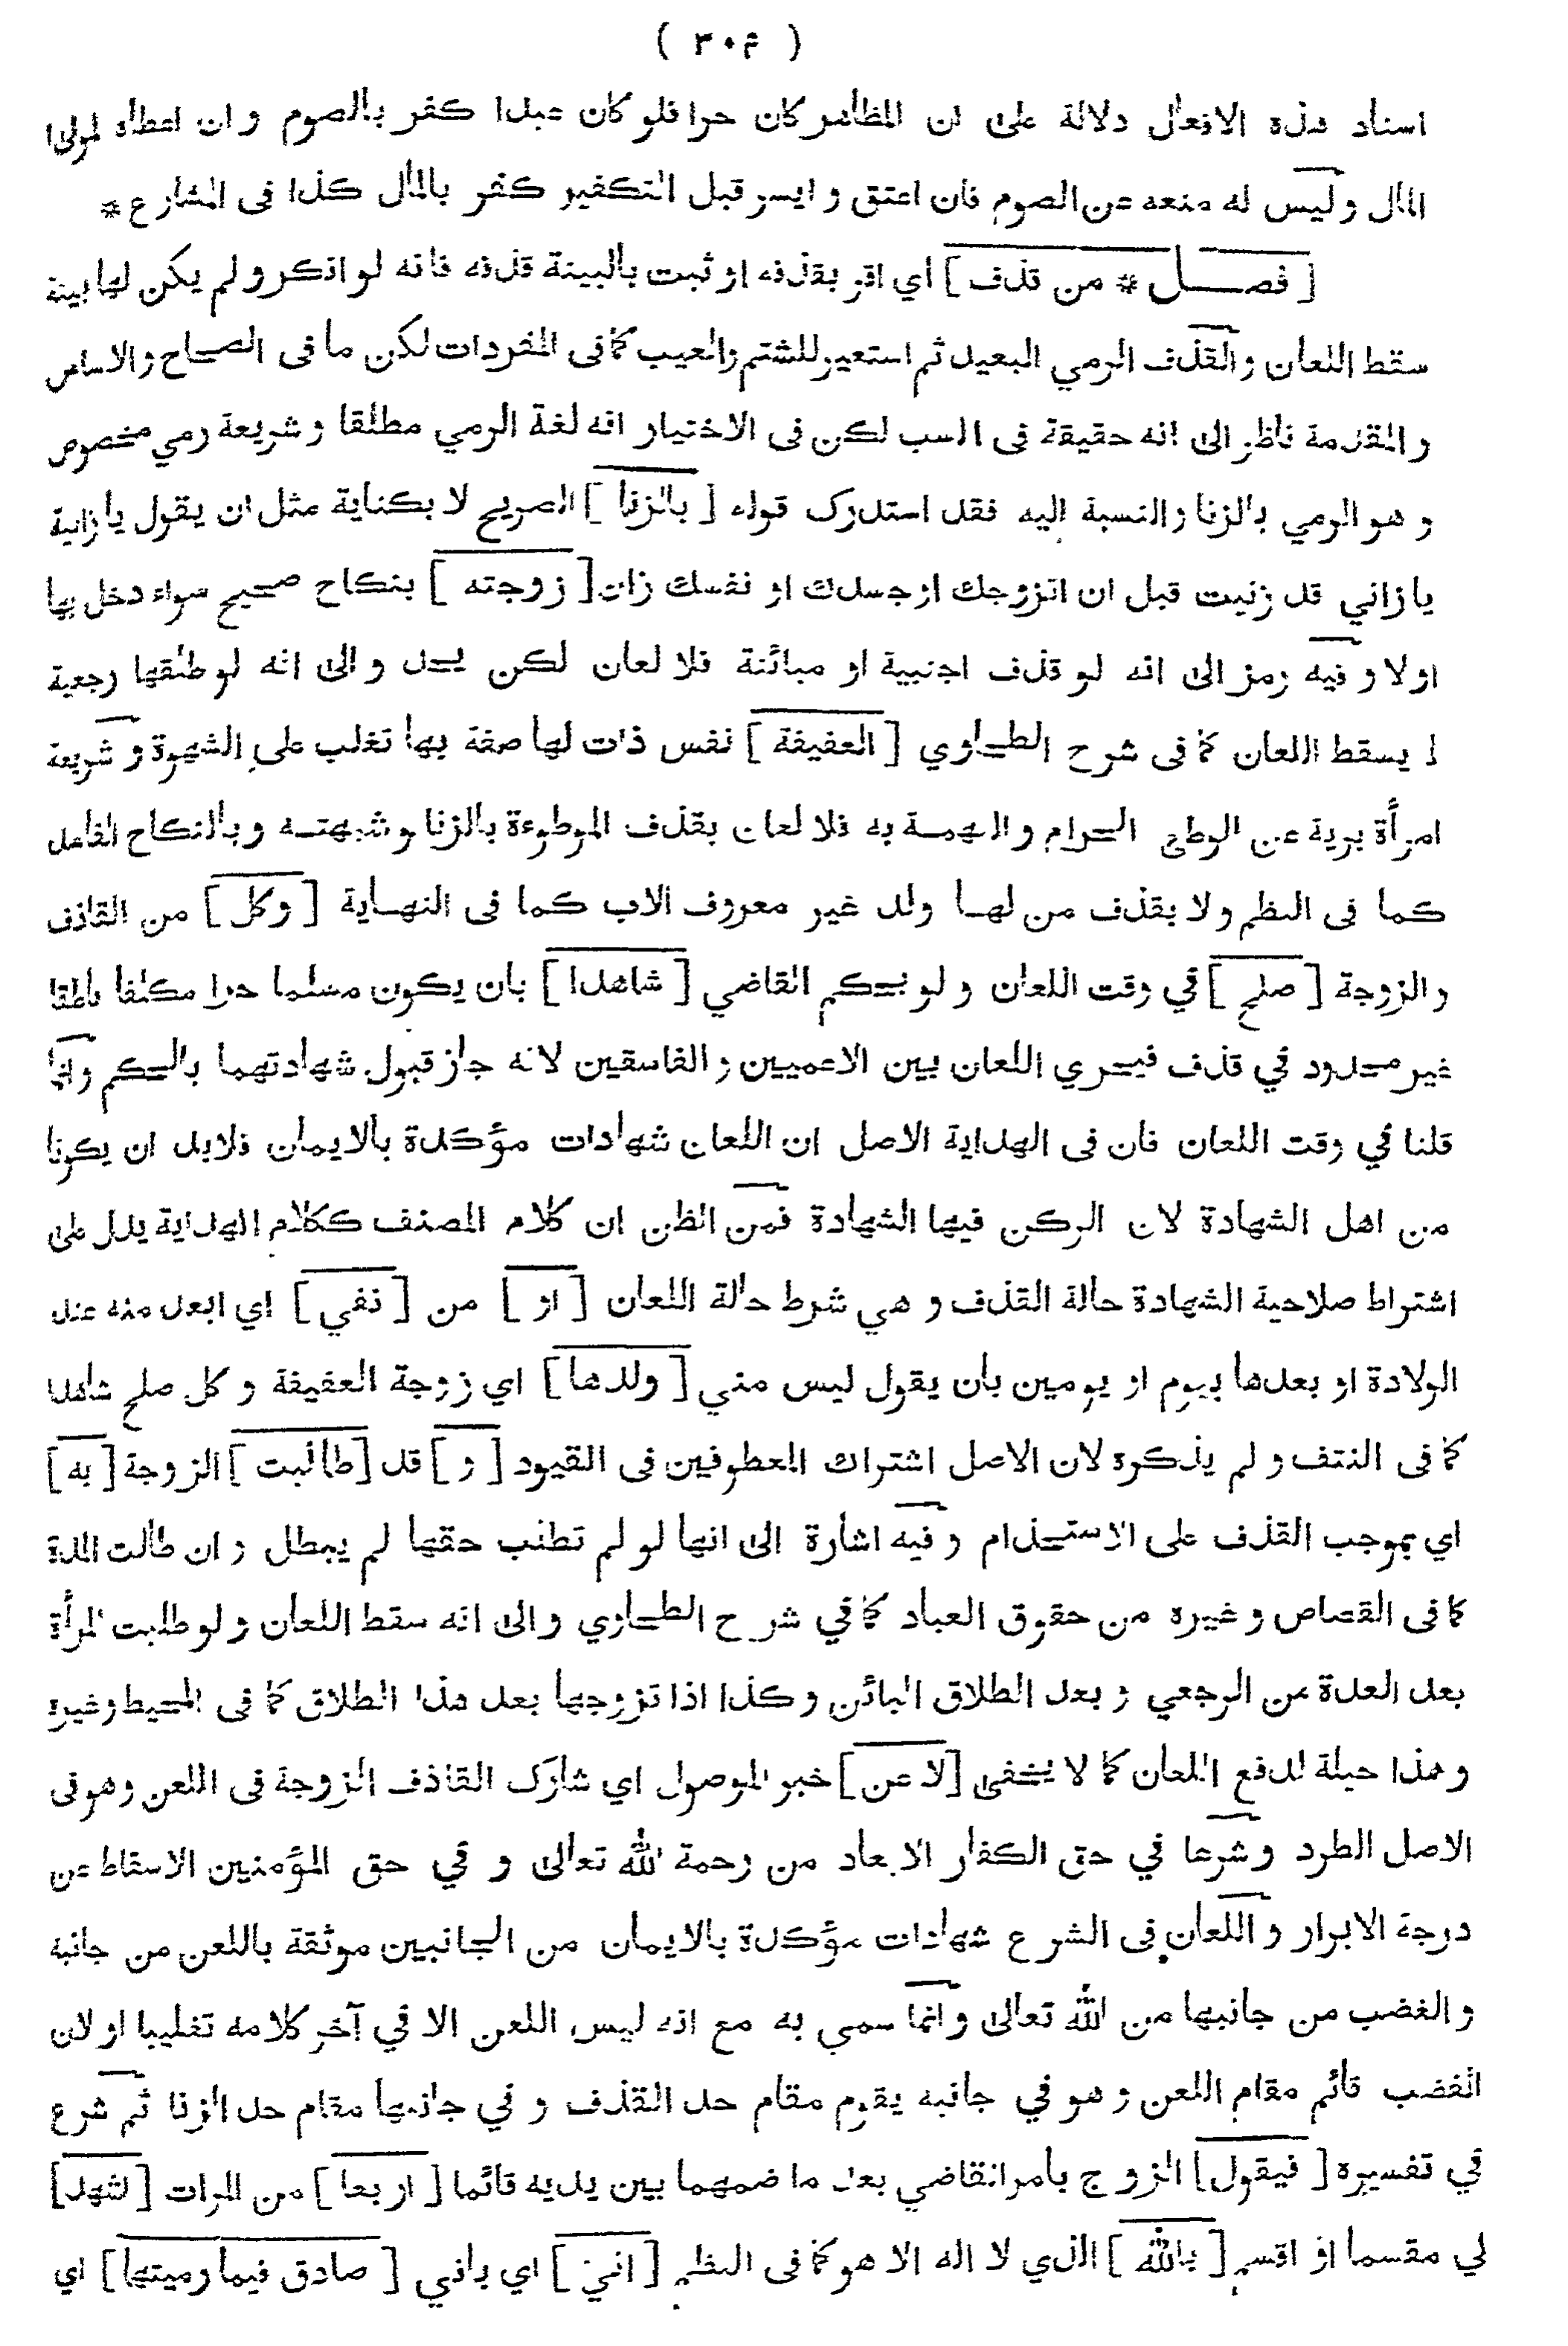 ( ٣٠٤ )
اسناد هذه الافعال دلالة على ان المظاهر كان حرا فلو كان عبدا كفر بالصوم و ان اعطاه المولى
المال و ليس له منعه عن الصوم فان اعتق و ايسر قبل التكفير كفر بالمال كذا فى المشارع *
[ فصــل * من قذف ] أي اقر بقذفه او ثبت بالبينة قذفه فانه لو انكر و لم يكن لها بينة
سقط اللعان و القذف الرمي البعيد ثم استعير للشتم و العيب كما فى المفردات لكن ما فى الصحاح و الاساس
و المقدمة ناظر الى انه حقيقة فى السب لكن فى الاختيار انه لغة الرمي مطلقا و شريعة رمي مخصوص
و هو الرمي بالزنا و النسبة إليه فقد استدرك قوله [ بالزنا ] الصريح لا بكناية مثل ان يقول يا زانية
يا زاني قد زنيت قبل ان اتزوجك او جسدك او نفسك زان [ زوجته ] بنكاح صحيح سواء دخل بها
اولا و فيه رمز الى انه لو قذف اجنبية او مبائنة فلا لعان لكن يحد و الى انه لو طلقها رجعية
لا يسقط اللعان كما فى شرح الطحاوي [ العفيفة ] نفس ذات لها صفة بها تغلب على الشهوة و شريعة
امرأة برية عن الوطي الحرام و التهمـة به فلا لعان بقذف الموطوءة بالزنا و شبهتـه و بالنكاح الفاسد
كما فى النظم و لا بقذف من لهـا ولد غير معروف الاب كما فى النهـاية [ و كل ] من القاذف
و الزوجة [ صلح ] في وقت اللعان و لو بحكم القاضي [ شاهدا ] بان يكون مسلما حرا مكلفا ناطقا
غير محدود في قذف فيجري اللعان بين الاعميين و الفاسقين لانه جاز قبول شهادتهما بالحكم و انما
قلنا في وقت اللعان فان فى الهداية الاصل ان اللعان شهادات مؤكدة بالايمان فلابد ان يكونا
من اهل الشهادة لان الركن فيها الشهادة فمن الظن ان كلام المصنف ككلام الهداية يدل على
اشتراط صلاحية الشهادة حالة القذف و هي شرط حالة اللعان [ او ] من [ نفي ] اي ابعد منه عند
الولادة او بعدها بيوم او يومين بان يقول ليس مني [ ولدها ] اي زوجة العفيفة و كل صلح شاهدا
كما فى النتف و لم يذكره لان الاصل اشتراك المعطوفين فى القيود [ و ] قد [ طالبت ] الزوجة [ به ]
اي بموجب القذف على الاستخدام و فيه اشارة الى انها لو لم تطلب حقها لم يبطل و ان طالت المدة
كما فى القصاص و غيره من حقوق العباد كما في شرح الطحاوي و الى انه سقط اللعان و لو طلبت المرأة
بعد العدة عن الرجعي و بعد الطلاق البائن و كذا اذا تزوجها بعد هذا الطلاق كما فى المحيط و غيره
و هذا حيلة لدفع اللعان كما لا يخفى [ لا عن ] خبر الموصول اي شارك القاذف الزوجة فى اللعن و هو فى
الاصل الطرد و شرعا في حق الكفار الابعاد من رحمة الله تعالى و في حق المؤمنين الاسقاط عن
درجة الابرار و اللعان فى الشرع شهادات مؤكدة بالايمان من الجانبين موثقة باللعن من جانبه
و الغضب من جانبها من الله تعالى و انما سمي به مع انه ليس اللعن الا في آخر كلامه تغليبا او لان
الغضب قائم مقام اللعن و هو في جانبه يقوم مقام حد القذف و في جانبها مقام حد الزنا ثم شرع
في تفسيره [ فيقول ] الزوج بامر القاضي بعد ما ضمهما بين يديه قائما [ اربعا ] من المرات [ اشهد ]
لي مقسما او اقسم [ بالله ] الذي لا اله الا هو كما فى النظم [ اني ] اي باني [ صادق فيما رميتها ] اي